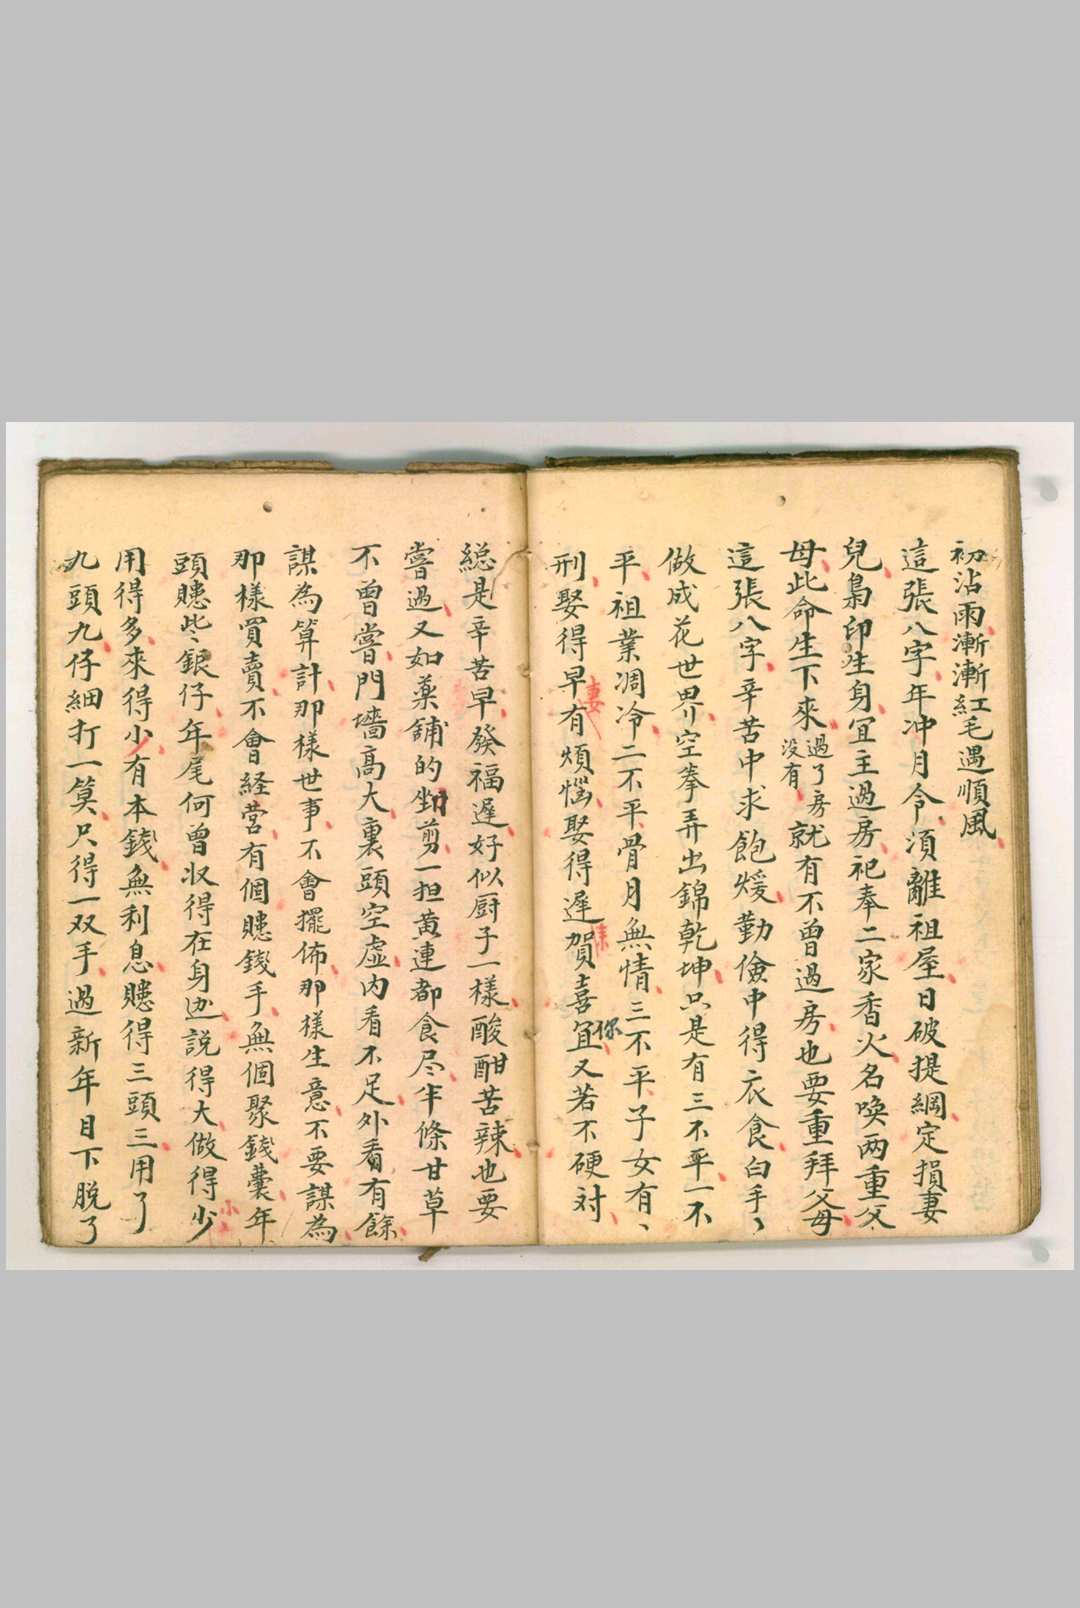 初沾雨漸漸紅毛遇順風
這張八字年冲月令須離祖屋日破提綱定損妻
兒梟印生身宜主過房祀奉二家香火名喚两重父
母此命生下來過了房没有就有不曾過房也要重拜父母
這張八字辛苦中求飽煖勤儉中得衣食白手丶
做成花世界空拳弄出錦乾坤只是有三不平一不
平祖業凋冷二不平骨月無情三不平子女有丶
刑娶妻得早有煩惱娶得遲賀喜你宜又若不硬对
総是辛苦早發福遲好似厨子一樣酸酣苦辣也要
嘗過又如薬舖的剪一担黄連都食尽半條甘草
不曾嘗門墻高大裏頭空虛内看不足外看有餘
謀為算計那樣世事不會擺佈那樣生意不要謀為
那樣買賣不會経营有個賺錢手無個聚錢囊年
頭賺些銀仔年尾何曾收得在身边説得大做得少小
用得多來得小有本錢無利息賺得三頭三用了
九頭九仔細打一算只得一双手過新年目下脱了